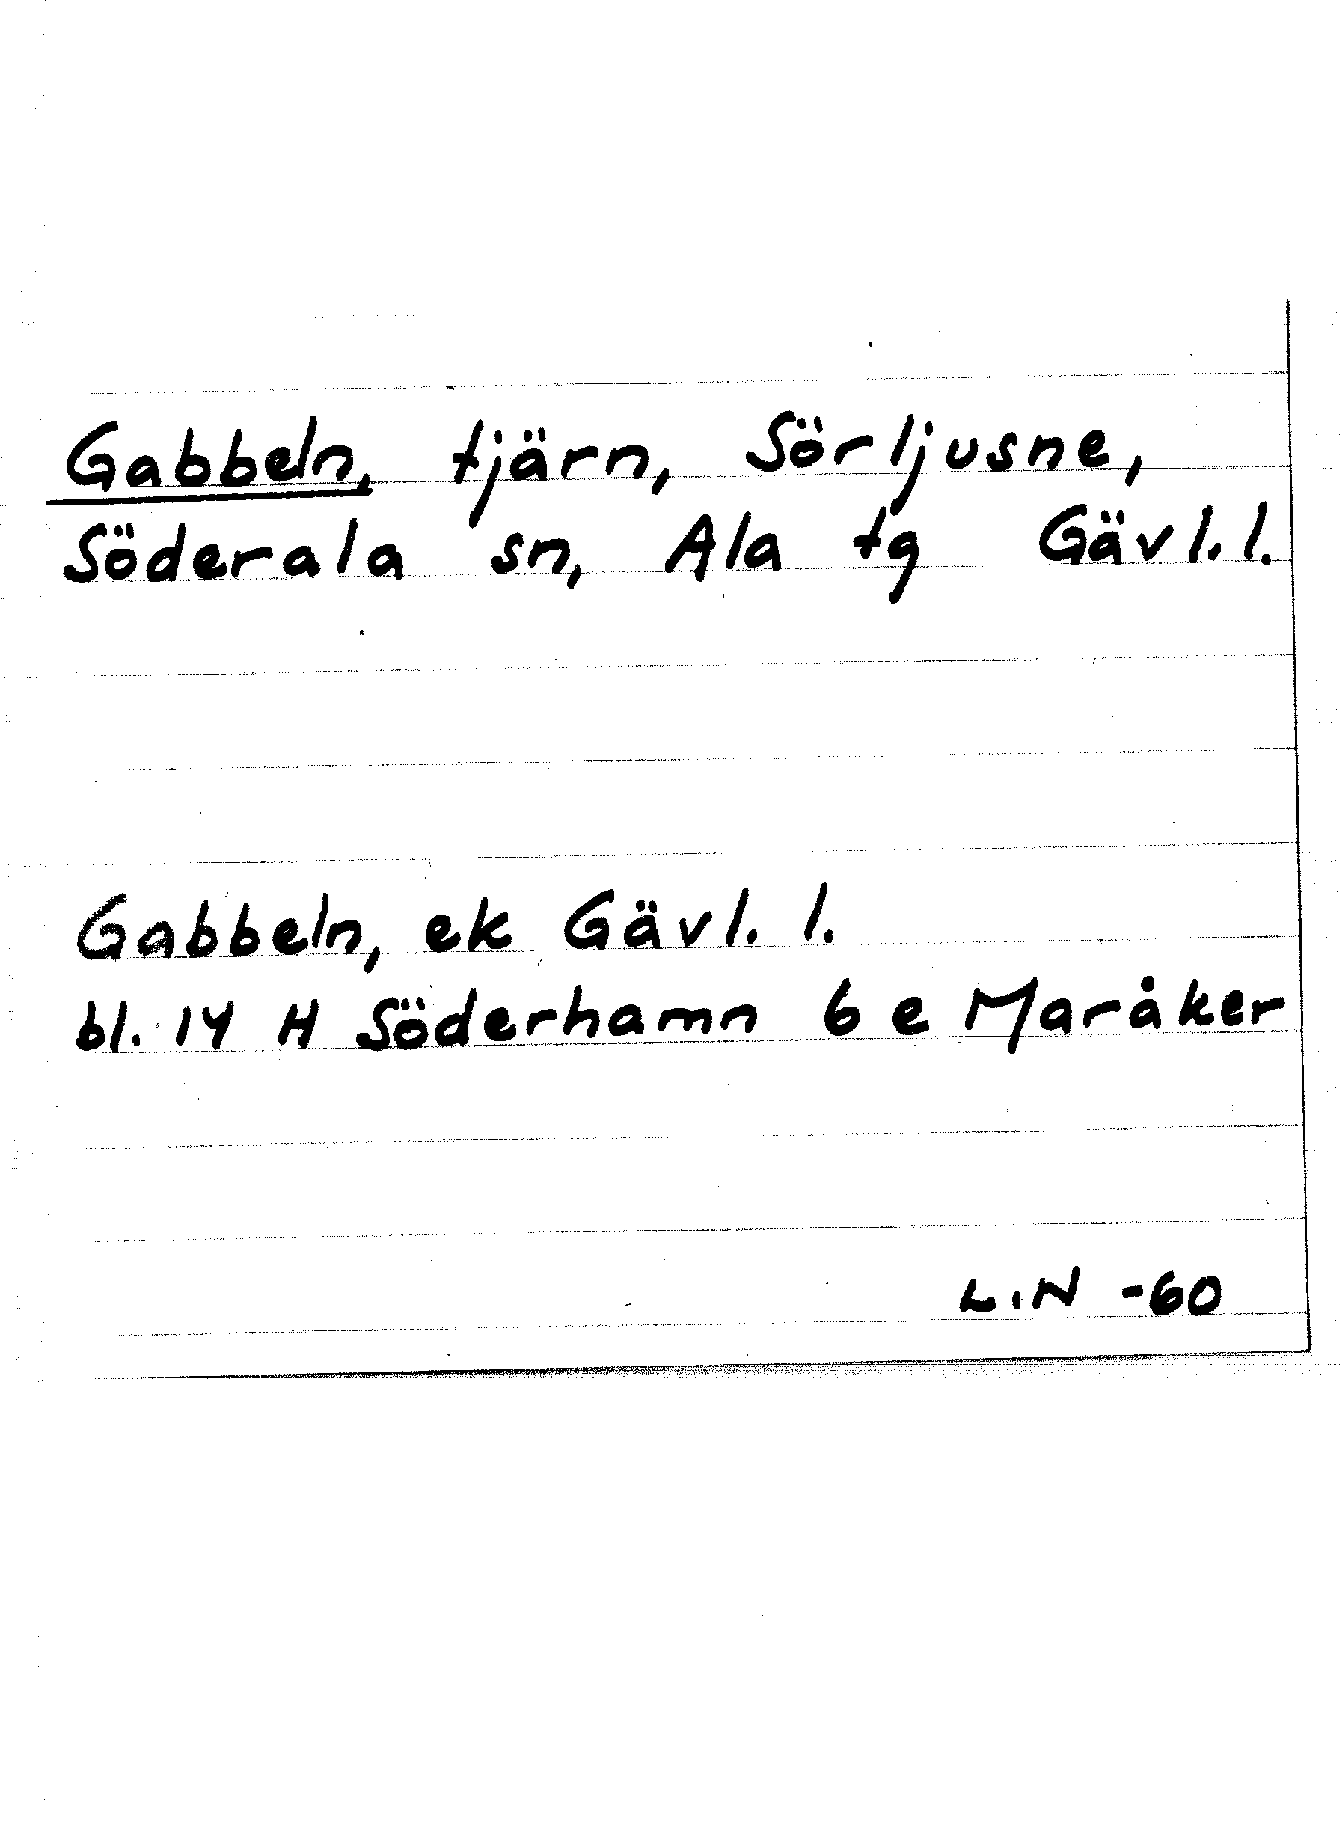 Gabbeln, tjärn, Sörljusne,
Söderala sn, Ala tg Gävl. l.
Gabbeln, ek Gävl. l.
bl. 14 H Söderhamn 6 e Maråker
L.N -60